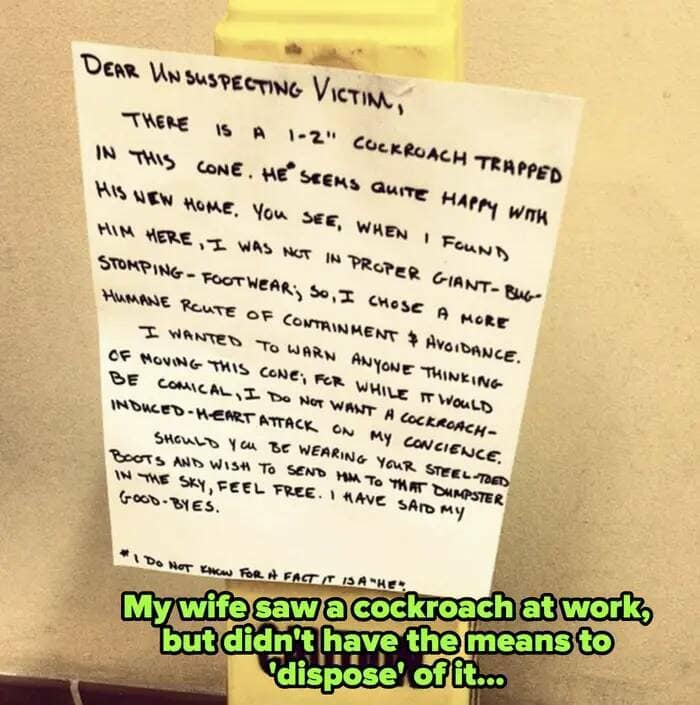 DEAR UNSUSPECTING VICTIM,
THERE IS A 1-2" COCKROACH TRAPPED
IN THIS CONE. HE* SEEMS QUITE HAPPY WITH
HIS NEW HOME. YOU SEE, WHEN I FOUND
HIM HERE, I WAS NOT IN PROPER GIANT-BUG-
STOMPING-FOOTWEAR; SO, I CHOSE A MORE
HUMANE ROUTE OF CONTAINMENT & AVOIDANCE.
I WANTED TO WARN ANYONE THINKING
OF MOVING THIS CONE; FOR WHILE IT WOULD
BE COMICAL, I DO NOT WANT A COCKROACH-
INDUCED-HEART ATTACK ON MY CONCIENCE.
SHOULD YOU BE WEARING YOUR STEEL-TOED
BOOTS AND WISH TO SEND HIM TO THAT DUMPSTER
IN THE SKY, FEEL FREE. I HAVE SAID MY
GOOD-BYES.
* I DO NOT KNOW FOR A FACT IT IS A "HE".
My wife saw a cockroach at work,
but didn't have the means to
'dispose' of it...